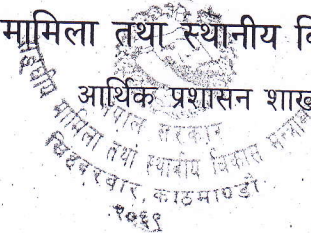 मामिला तथा स्थानीय वि
आर्थिक प्रशासन शाख
नेपाल सरकार
सङ्घीय मामिला तथा स्थानीय विकास मन्त्रालय
सिंहदरबार, काठमाण्डौ
२०६९